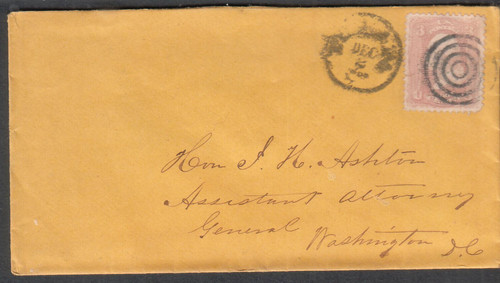 DEC
2
3 3
U
Hon J. H. Ashton
Assistant Attorney
General Washington D.C